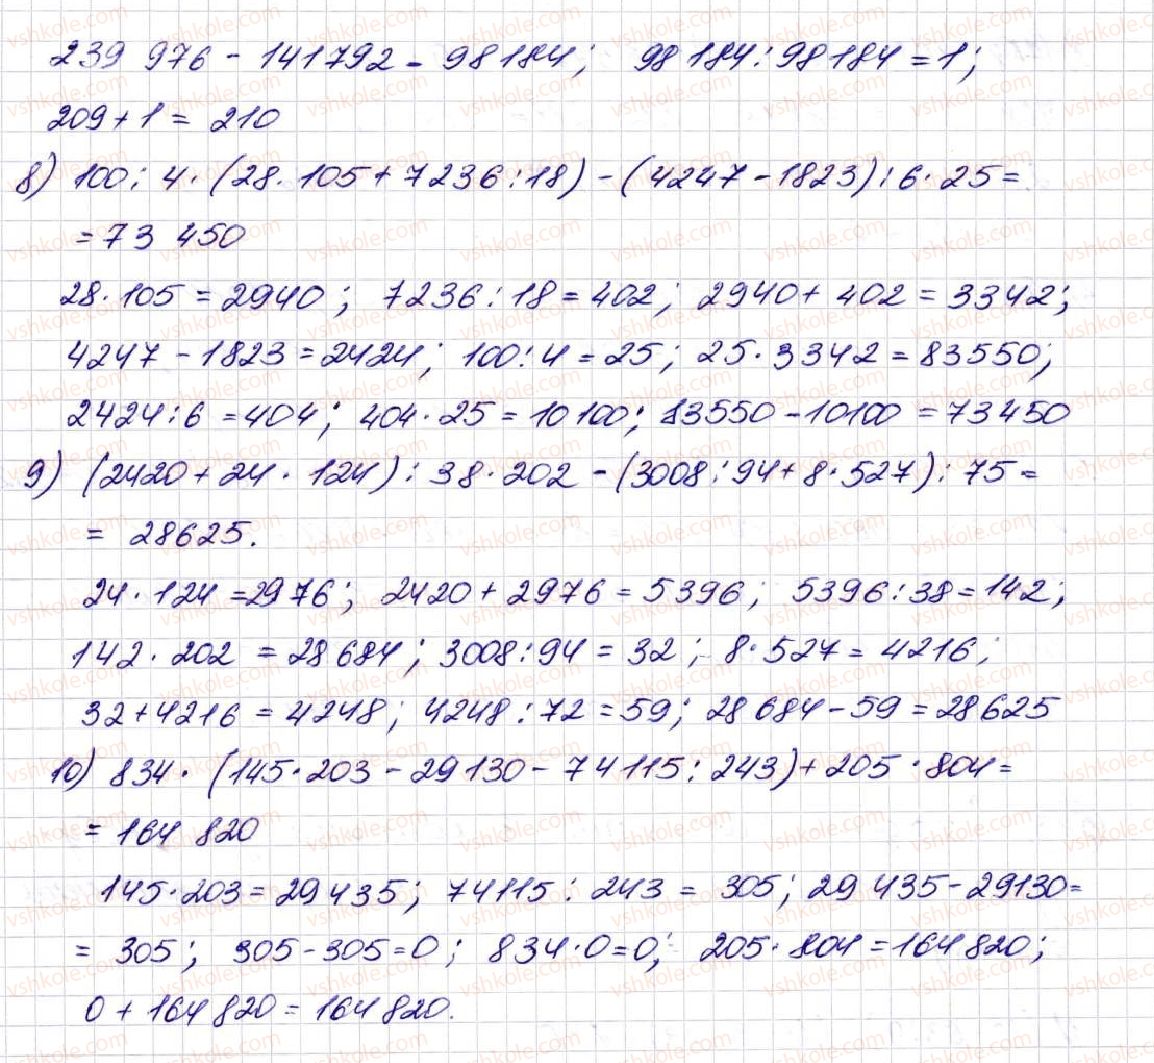 239 976 - 141792 = 98184; 98 184 : 98 184 = 1;
209 + 1 = 210
8) 100 : 4 · (28 · 105 + 7236 : 18) - (4247 - 1823) : 6 · 25 =
= 73 450
28 · 105 = 2940; 7236 : 18 = 402; 2940 + 402 = 3342;
4247 - 1823 = 2424; 100 : 4 = 25; 25 · 3342 = 83550;
2424 : 6 = 404; 404 · 25 = 10 100; 83550 - 10100 = 73450
9) (2420 + 24 · 124) : 38 · 202 - (3008 : 94 + 8 · 527) : 75 =
= 28625.
24 · 124 = 2976; 2420 + 2976 = 5396; 5396 : 38 = 142;
142 · 202 = 28 684; 3008 : 94 = 32; 8 · 527 = 4216;
32 + 4216 = 4248; 4248 : 72 = 59; 28 684 - 59 = 28625
10) 834 · (145 · 203 - 29130 - 74115 : 243) + 205 · 804 =
= 164 820
145 · 203 = 29 435; 74115 : 243 = 305; 29 435 - 29130 =
= 305; 305 - 305 = 0; 834 · 0 = 0; 205 · 804 = 164 820;
0 + 164 820 = 164 820.